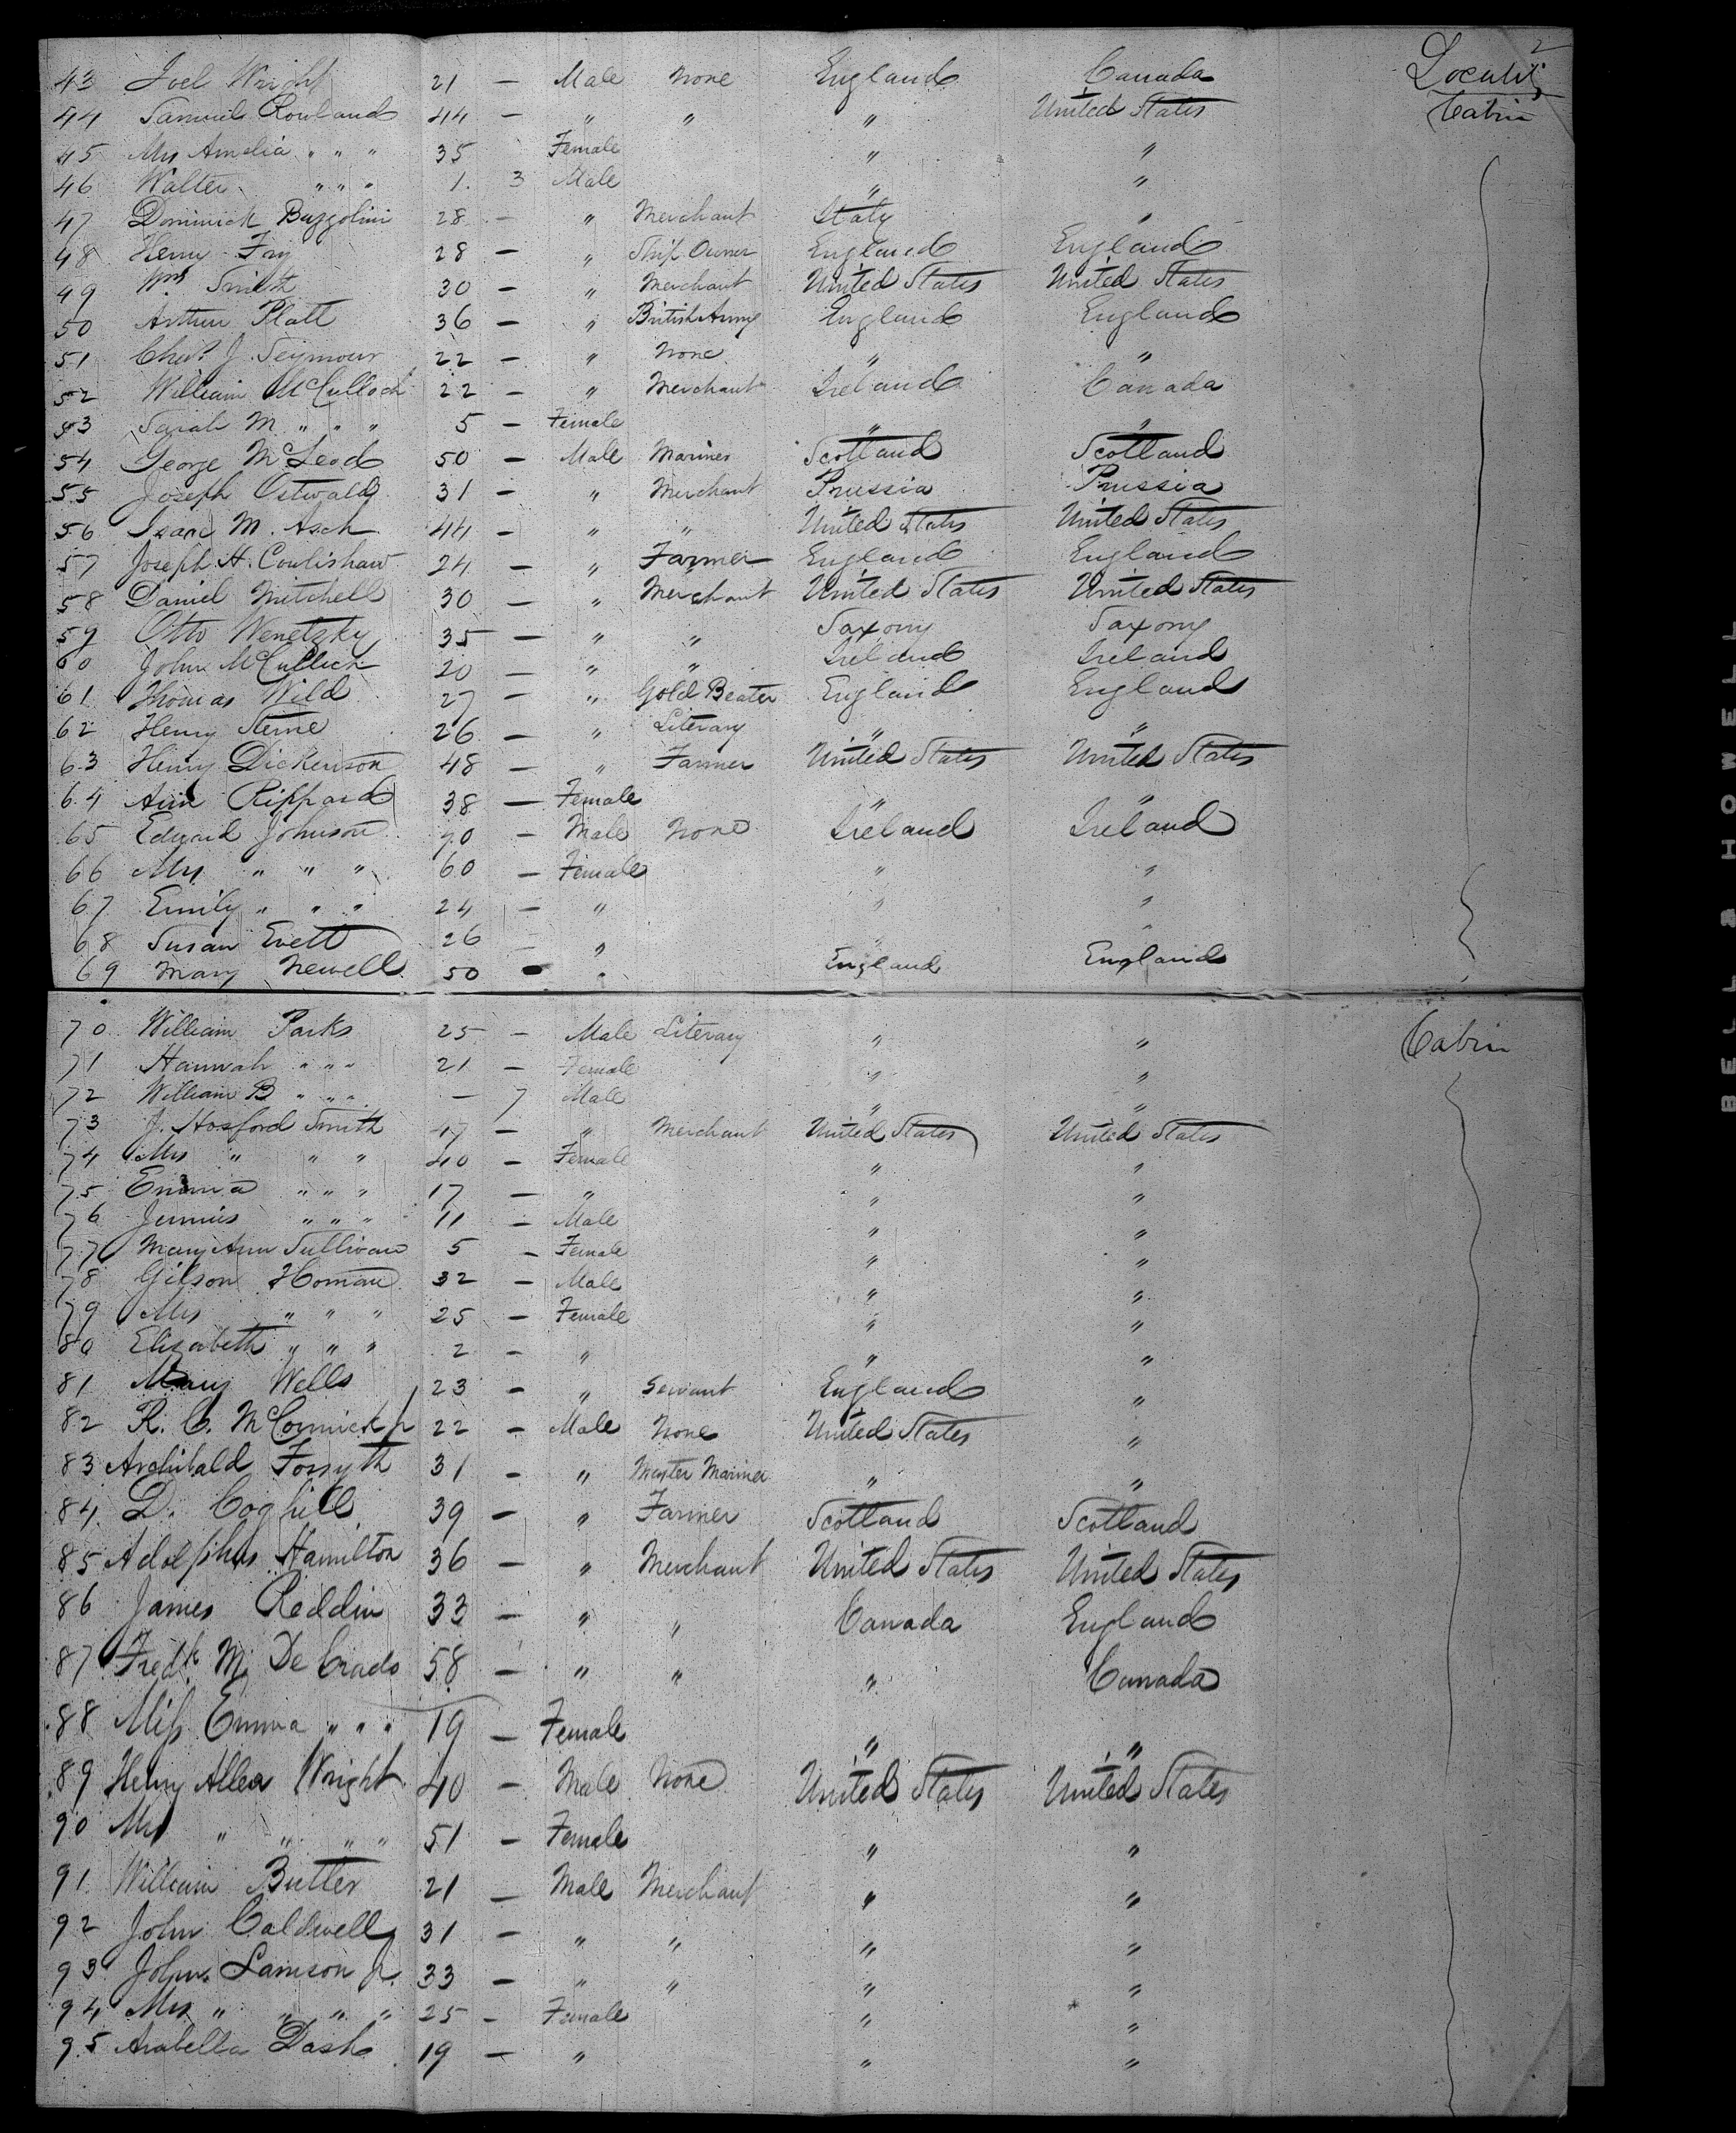 2
Locality
43 Joel Wright 21 — Male None England Canada Cabin
44 Samuel Rowland 44 — " " " United States
45 Mrs Amelia " " " 35 Female " "
46 Walter " " " 1. 3 Male " "
47 Dominick Bazzolini 28 — " Merchant Italy "
48 Henry Fry 28 — " Ship Owner England England
49 Wm Smith 30 — " Merchant United States United States
50 Arthur Platt 36 — " British Army England England
51 Chas. J. Seymour 22 — " None " "
52 William McCulloch 22 — " Merchant Ireland Canada
53 Sarah M " " " 5 — Female " "
54 George McLeod 50 — Male Mariner Scotland Scotland
55 Joseph Ostwald 31 — " Merchant Prussia Prussia
56 Isaac M. Asch 44 — " " United States United States
57 Joseph H. Coulishaw 24 — " Farmer England England
58 Daniel Mitchell 30 — " Merchant United States United States
59 Otto Wenetzky 35 — " " Saxony Saxony
60 John McCullick 20 — " " Ireland Ireland
61 Thomas Wild 27 — " Gold Beater England England
62 Henry Sterne 26 — " Literary " "
63 Henry Dickenson 48 — " Farmer United States United States
64 Ann Rippard 38 — Female " "
65 Edward Johnson 70 — Male None Ireland Ireland
66 Mrs " " " 60 — Female " "
67 Emily " " " 24 — " " "
68 Susan Evett 26 — " " "
69 Mary Newell 50 — " England England
70 William Parks 25 — Male Literary " " Cabin
71 Hannah " " " 21 — Female " "
72 William B " " " — 7 Male " "
73 J. Hosford Smith 47 — " Merchant United States United States
74 Mrs " " " 40 — Female " "
75 Emma " " " 17 — " " "
76 Junius " " " 11 — Male " "
77 Mary Ann Sullivan 5 — Female " "
78 Gilson Homan 32 — Male " "
79 Mrs " " " 25 — Female " "
80 Elizabeth " " " 2 — " " "
81 Mary Wells 23 — " Servant England "
82 R. C. McCormick jr 22 — Male None United States "
83 Archibald Forsyth 31 — " Master Mariner " "
84 D. Coghill 39 — " Farmer Scotland Scotland
85 Adolphus Hamilton 36 — " Merchant United States United States
86 James Reddin 33 — " " Canada England
87 Fredk. M. De 58 — " " " Canada
88 Miss Emma " " " 19 — Female " "
89 Henry Allen Wright 40 — Male None United States United States
90 Mrs " " " " 51 — Female " "
91 William Butler 21 — Male Merchant " "
92 John Caldwell 31 — " " " "
93 John Samson jr. 33 — " " " "
94 Mrs " " " " 25 — Female " "
95 Arabella Dash 19 — " " "
BELL & HOWELL